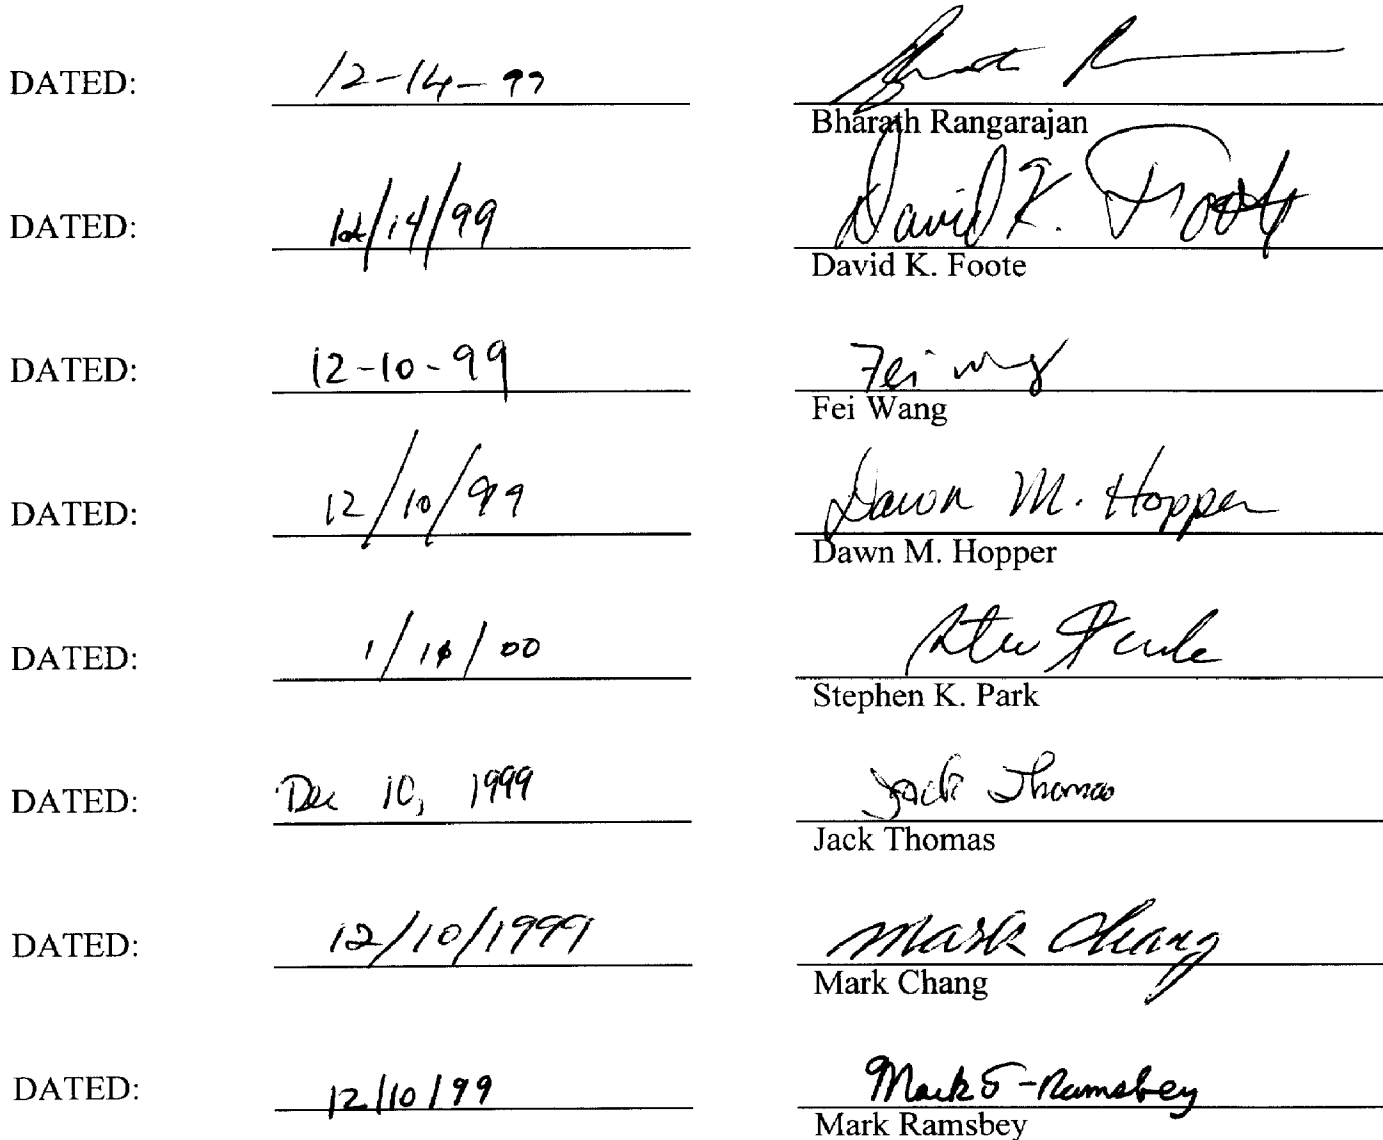 DATED: 12-14-99
Bharath Rangarajan
DATED: 12/14/99 David K. Foote
David K. Foote
DATED: 12-10-99 Fei Wang
Fei Wang
DATED: 12/10/99 Dawn M. Hopper
Dawn M. Hopper
DATED: 1/10/00
Stephen K. Park
DATED: Dec 10, 1999 Jack Thomas
Jack Thomas
DATED: 12/10/1999 Mark Chang
Mark Chang
DATED: 12/10/99 Mark T-Ramsbey
Mark Ramsbey